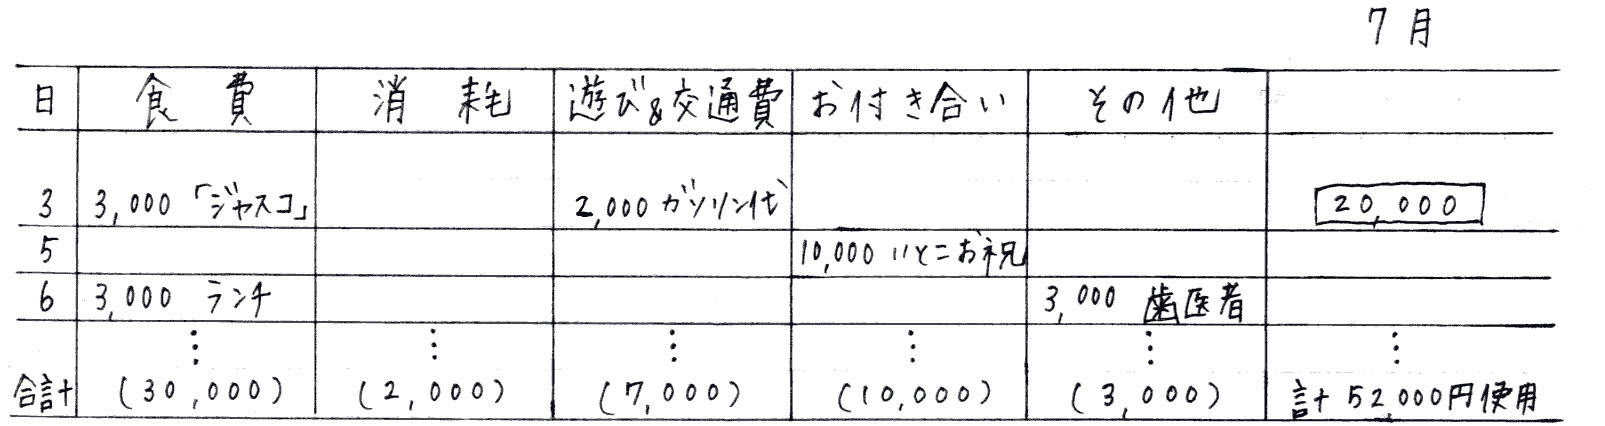 7月
日 食費 消耗 遊び&交通費 お付き合い その他
3 3,000 「ジャスコ」 2,000 ガソリン代 20,000
5 10,000 いとこお祝
6 3,000 ランチ 3,000 歯医者
⋮ ⋮ ⋮ ⋮ ⋮ ⋮
合計 (30,000) (2,000) (7,000) (10,000) (3,000) 計 52,000円使用